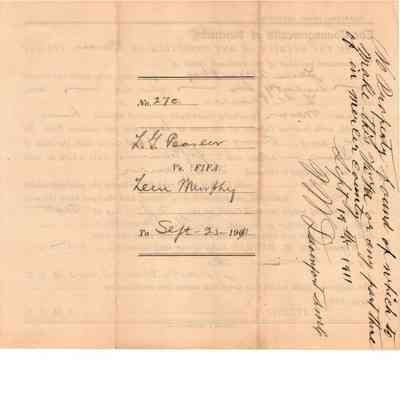 No. 270
L. G. Pearler
Vs. FIFA
Lem Murphy
To Sept - 23 - 1911.
No Property found of which to
Make this fifa or any part there
of in Mercer County
Sept 19 th 1911
Davenport